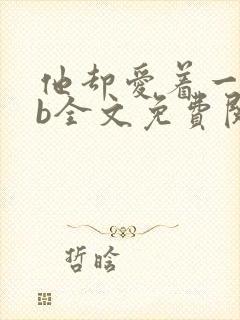 他却爱着一
b全文免費閱
哲晗